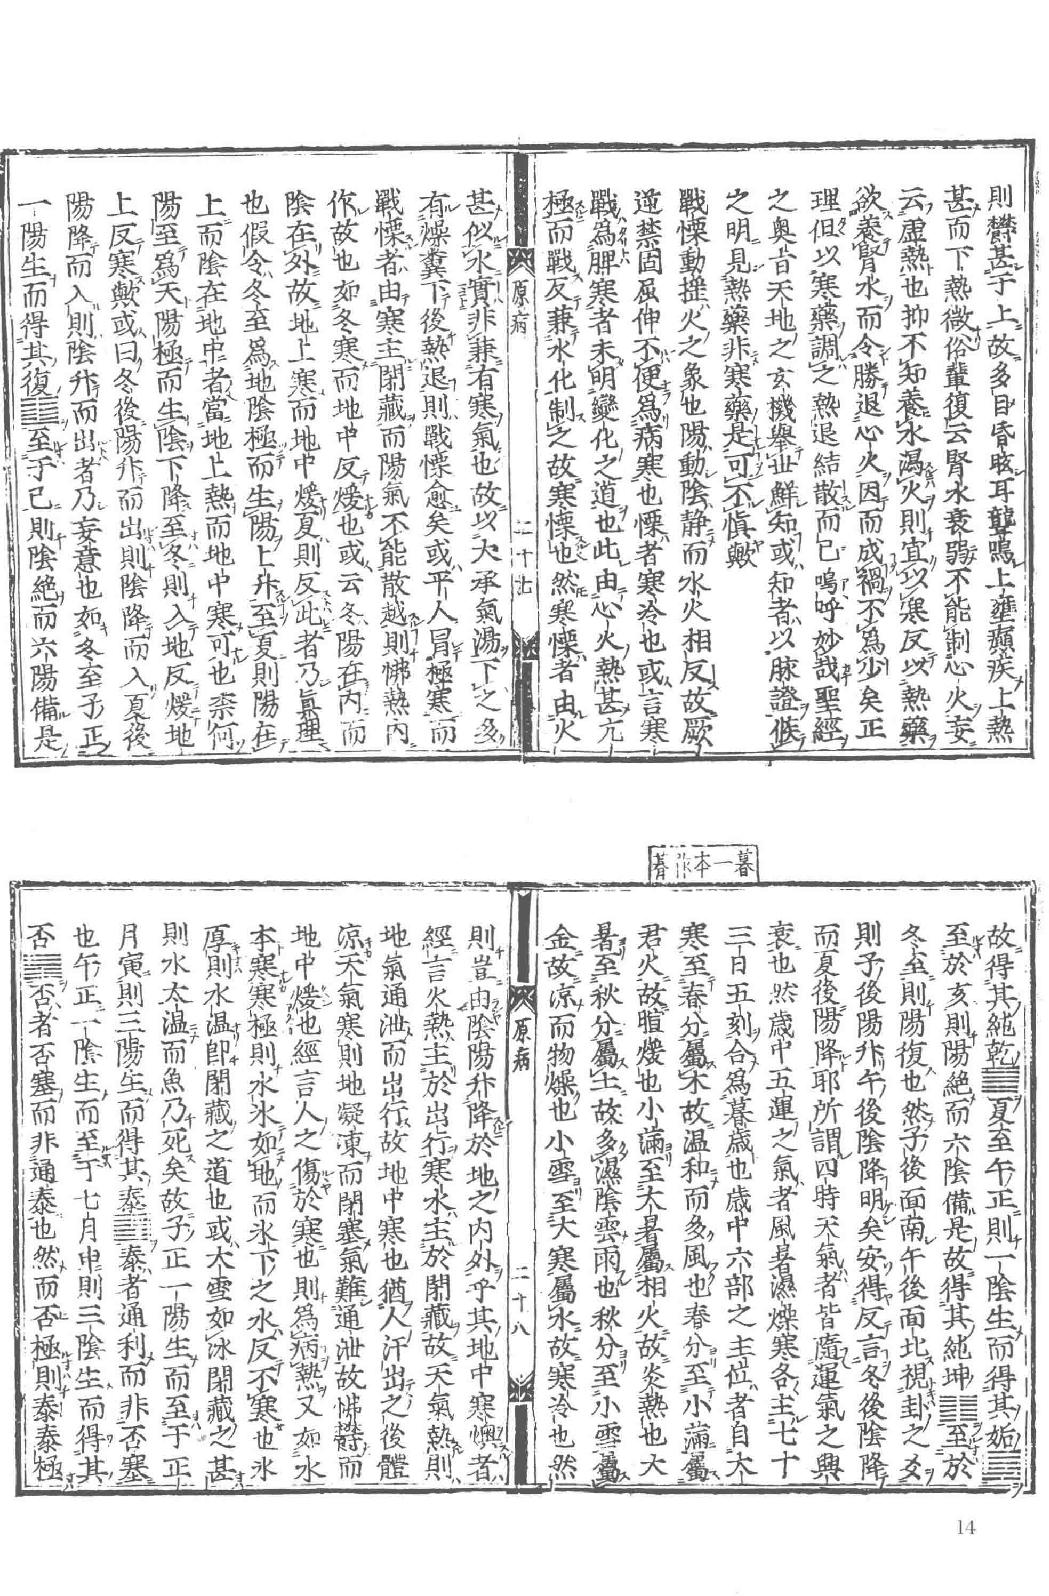 則鬱甚于上故多目昏眩耳聾鳴上壅癲疾上熱
甚而下熱微俗輩復云腎水衰弱不能制心火妄
云虛熱也抑不知養水瀉火則宜以寒反以熱藥
欲養腎水而令勝退心火因而成禍不爲少矣正
理但以寒藥調之熱退結散而已嗚呼妙哉聖經
之奧旨天地之玄機舉世鮮知或知者以脉證候
之明見熱藥非寒藥是可不慎歟
戰慄動搖火之象也陽動陰静而水火相反故厥
逆禁固屈伸不便爲病寒也慄者寒冷也或言寒
戰爲脾寒者未明變化之道也此由心火熱甚亢
極而戰反兼水化制之故寒慄也然寒慄者由火
原病
二十七
甚似水實非兼有寒氣也故以大承氣湯下之多
有燥糞下後熱退則戰慄愈矣或平人冒極寒而
戰慄者由寒主閉藏而陽氣不能散越則怫熱内
作故也如冬寒而地中反煖也或云冬陽在内而
陰在外故地上寒而地中煖夏則反此者乃眞理
也假令冬至爲地陰極而生陽上升至夏則陽在
上而陰在地中者當地上熱而地中寒可也柰何
陽至爲天陽極而生陰下降至冬則入地反煖地
上反寒歟或曰冬後陽升而出則陰降而入夏後
陽降而入則陰升而出者乃妄意也如冬至子正
一陽生而得其復䷗至于巳則陰絕而六陽備是
暮一本作朞
故得其純乾䷀夏至午正則一陰生而得其姤䷫
至於亥則陽絕而六陰備是故得其純坤䷁至於
冬至則陽復也然子後面南午後面北視卦之爻
則子後陽升午後陰降明矣安得反言冬後陰降
而夏後陽降耶所謂四時天氣者皆隨運氣之興
衰也然歲中五運之氣者風暑濕燥寒各主七十
三日五刻合爲暮歲也歲中六部之主位者自大
寒至春分屬木故温和而多風也春分至小滿屬
君火故暄煖也小滿至大暑屬相火故炎熱也大
暑至秋分屬土故多濕陰雲雨也秋分至小雪屬
金故凉而物燥也小雪至大寒屬水故寒冷也然
原病
二十八
則豈由陰陽升降於地之内外乎其地中寒燠者
經言火熱主於出行寒水主於閉藏故天氣熱則
地氣通泄而出行故地中寒也猶人汗出之後體
凉天氣寒則地凝凍而閉塞氣難通泄故怫鬱而
地中煖也經言人之傷於寒也則爲病熱又如水
本寒寒極則水氷如地而氷下之水反不寒也氷
厚則水温即閉藏之道也或大雪如冰閉藏之甚
則水太温而魚乃死矣故子正一陽生而至于正
月寅則三陽生而得其泰䷊泰者通利而非否塞
也午正一陰生而至于七月申則三陰生而得其
否䷋否者否塞而非通泰也然而否極則泰泰極
14